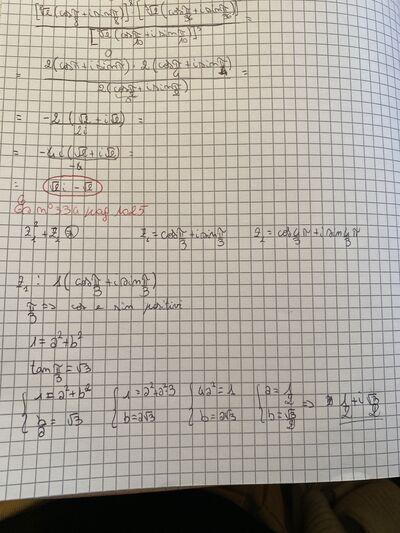 [∜2 (cos π/8 + i sin π/8)]⁸ [∛2 (cos π/36 + i sin π/36)]⁹ =
[∜2 (cos π/10 + i sin π/10)]⁵
= 2(cos π + i sin π) · 2(cos π/4 + i sin π/4) =
2(cos π/2 + i sin π/2)
= -2(√2 + i√2) =
2i
= -4i(√2 + i√2) =
-4
= √2i - √2
Es n° 334 pag 1025
z₁ = cos π/3 + i sin π/3 z₂ = cos 4/3 π + i sin 4/3 π
z₁ : 1(cos π/3 + i sin π/3)
π/3 => cos e sin positivi
1 = a² + b²
tan π/3 = √3
{ 1 = a² + b² { 1 = a² + a²3 { 4a² = 1 { a = 1/2 => 1/2 + i √3/2
{ b/a = √3 { b = a√3 { b = a√3 { b = √3/2